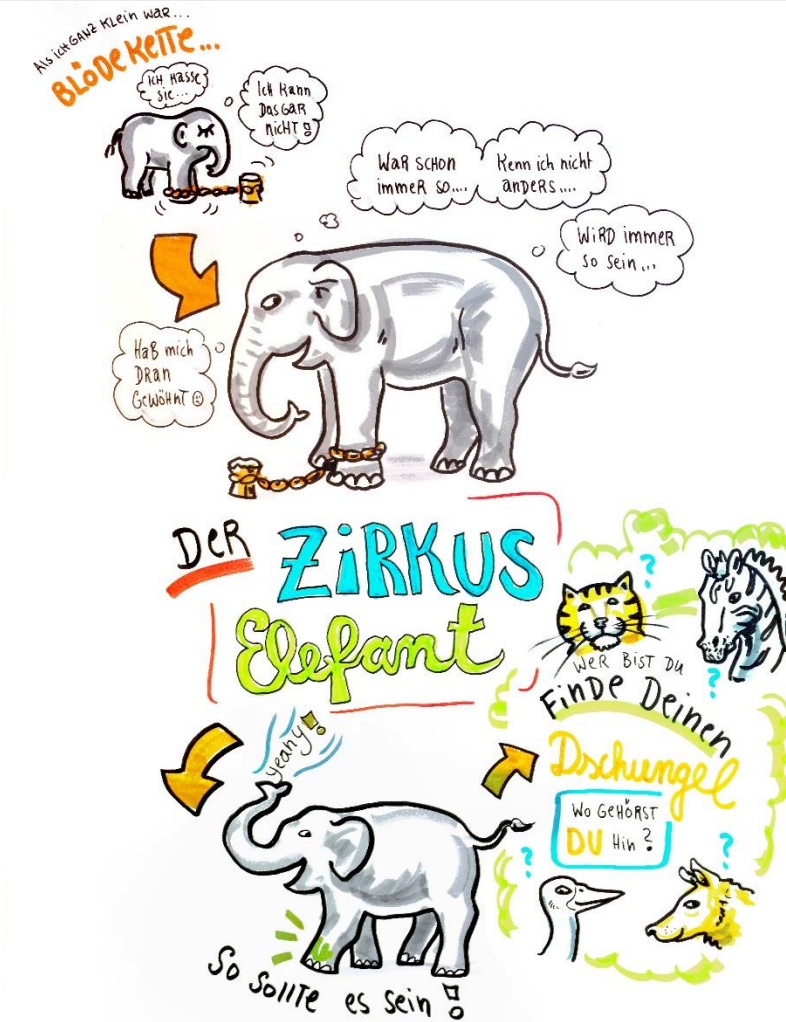 Als ich GANZ Klein war...
BLÖDE KETTE...
ICH HASSE
SIE...
Ich Kann
DAS GAR
NICHT!
WAR SCHON
immer so....
Kenn ich nicht
anders....
WiRD immer
so sein...
HaB mich
DRAN
GEWÖHNT ☹
DER
ZiRKUS
Elefant
?
?
WER BIST DU
FINDE DEINEN
Dschungel
WO GEHÖRST
DU Hin?
?
?
yeahy!
So Sollte es sein!